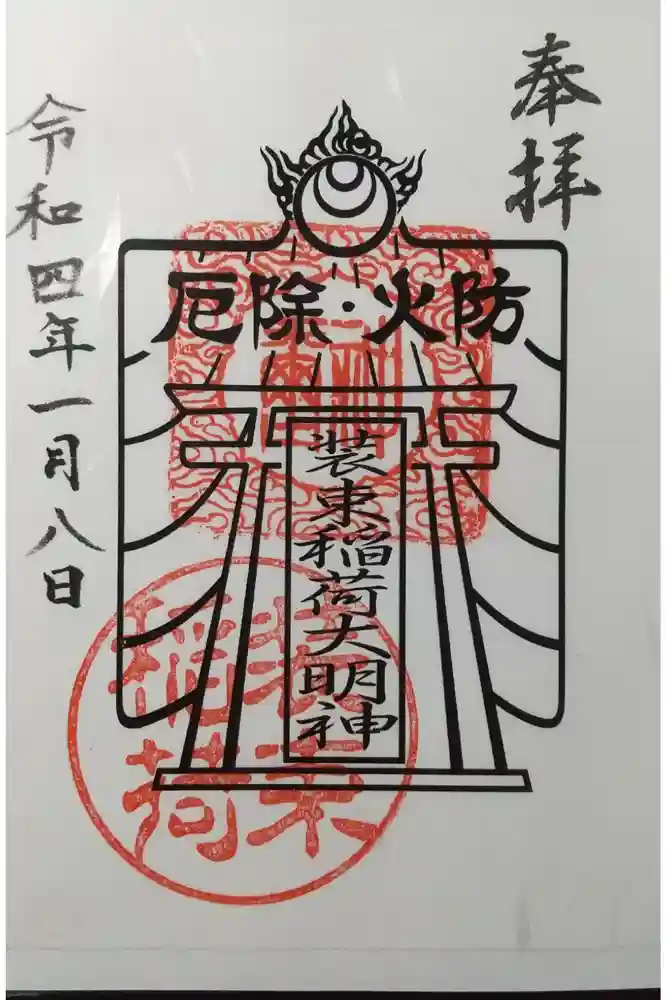 奉拝
防火・除厄
装束稲荷大明神
装束
稲荷
令和四年一月八日